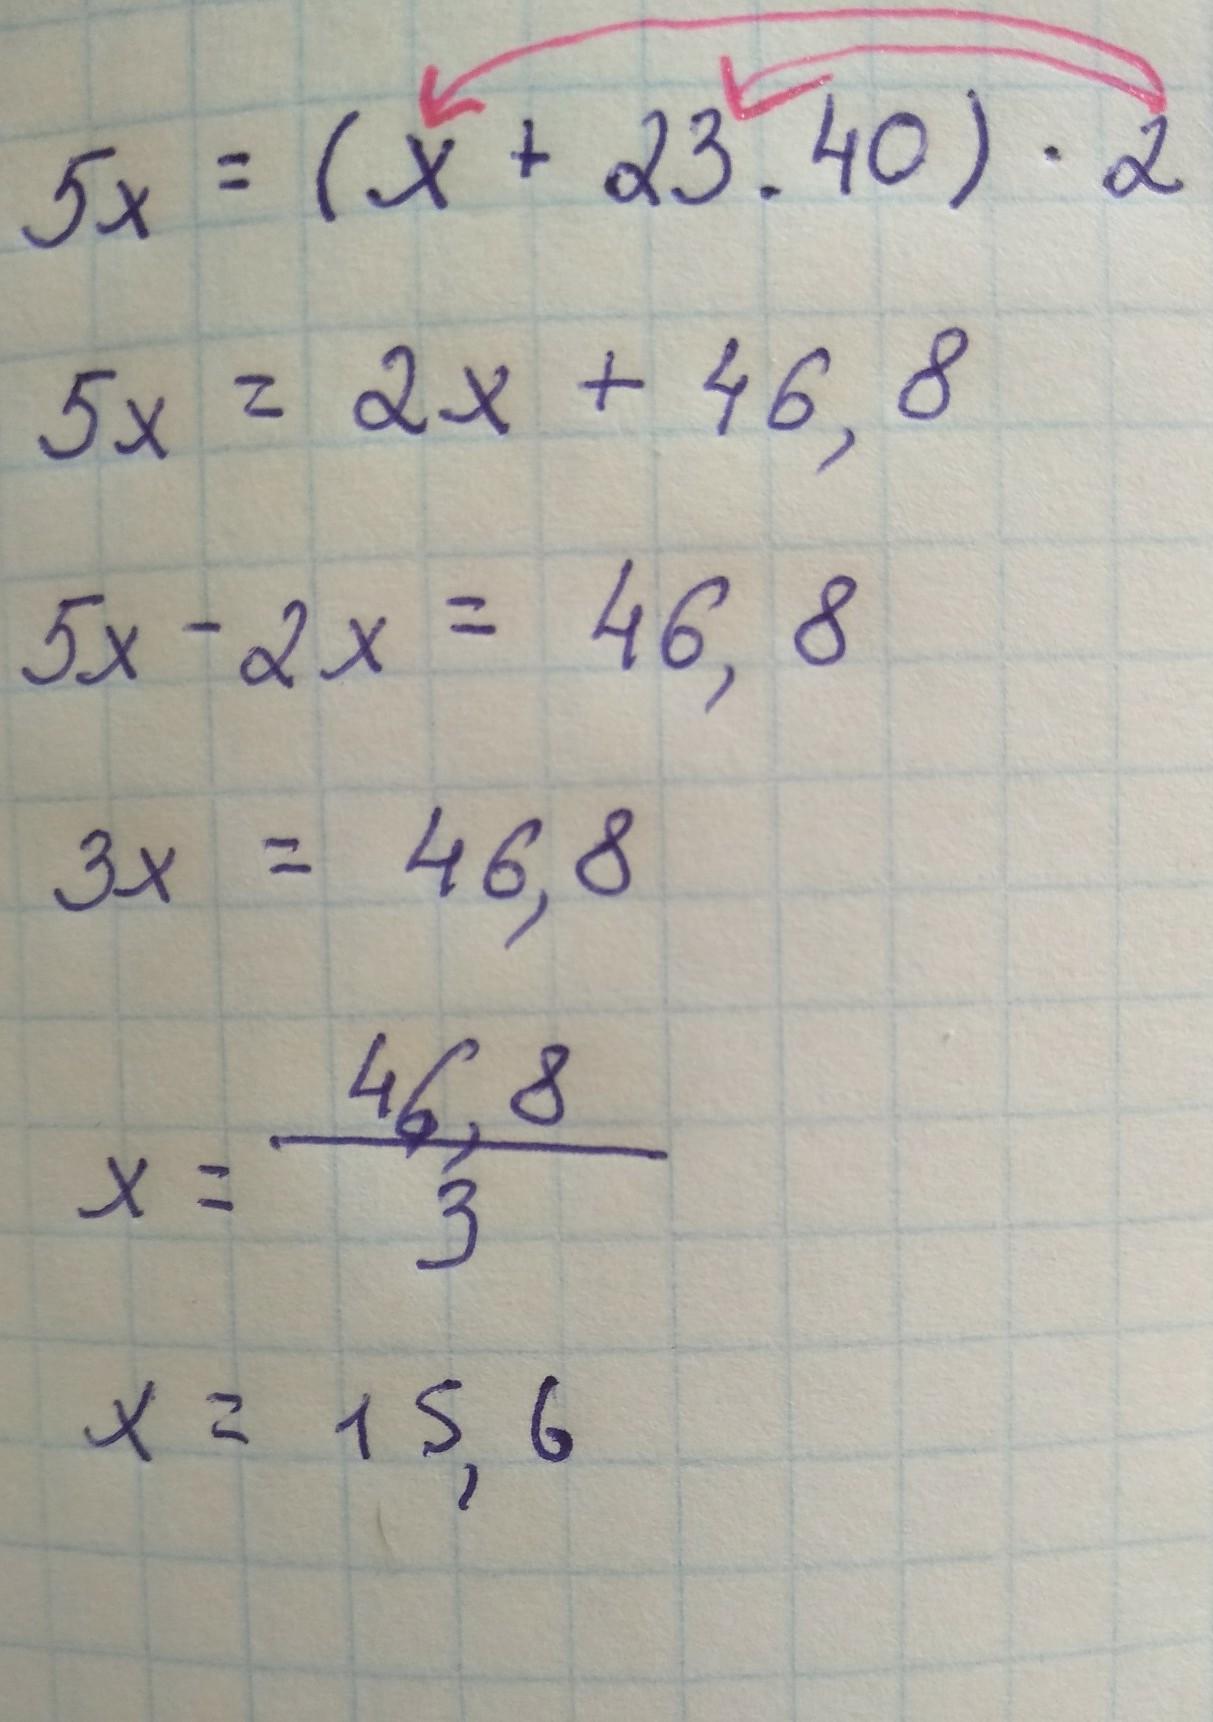 5x = (x + 23.40) · 2
5x = 2x + 46,8
5x - 2x = 46,8
3x = 46,8
x = 46,8 / 3
x = 15,6